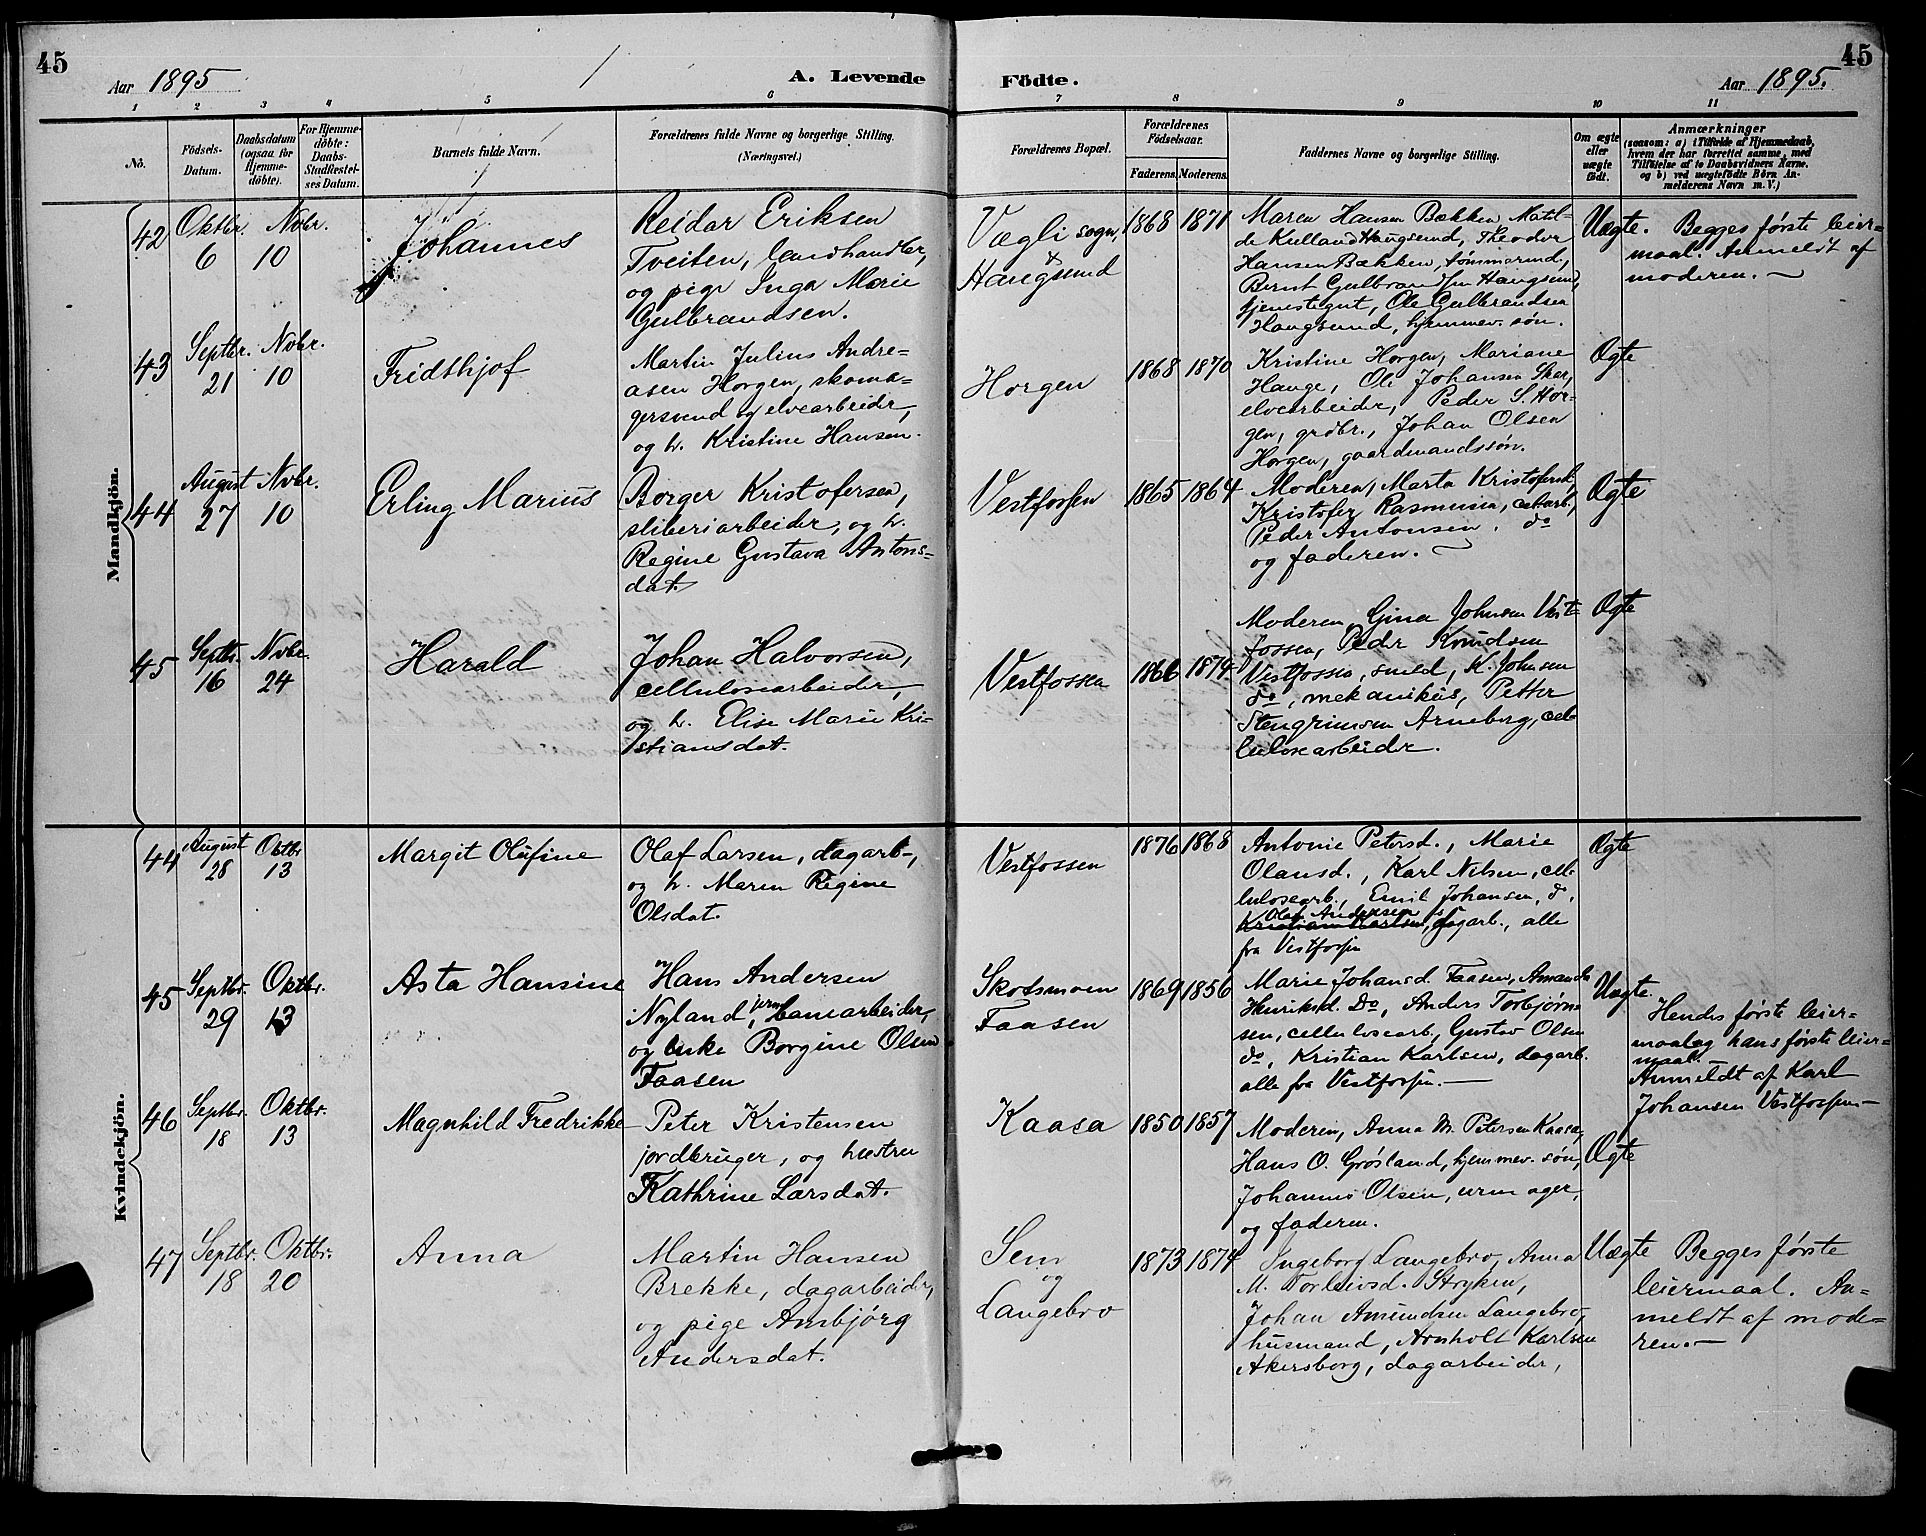 45
45
Aar 1895
A. Levende
Födte.
Aar 1895.
1 2 3 4 5 6 7 8 9 10 11
No.
Födsels-
Datum.
Daabsdatum
(ogsaa for
Hjemme-
döbte).
For Hjemme-
döbte:
Daabs-
Stadfæstel-
ses Datum.
Barnets fulde Navn.
Forældrenes fulde Navne og borgerlige Stilling.
(Næringsvei.)
Forældrenes Bopæl.
Forældrenes
Födselsaar.
Faderens. Moderens.
Faddernes Navne og borgerlige Stilling.
Om ægte
eller
uægte
födt.
Anmærkninger
(saasom: a) i Tilfælde af Hjemmedaab,
hvem der har forrettet samme, med
Tilföielse af to Daabsvidners Navne,
og b) ved uægtefödte Börn An-
melderens Navn m. V.)
Mandkjön.
42
Oktbr.
6
Novbr.
10
Johannes
Reidar Eriksen
Tveiten, landhandler,
og pige Inga Marie
Gulbrandsen.
Vægli sogn,
&
Haugsund
1868 1871
Maren Hansen Bækken, Matil-
de Kulland Haugsund, Theodor
Hansen Bækken, tømmermd.,
Bernt Gulbrandsen Haugsund,
tjenestegut, Ole Gulbrandsen
Haugsund, hjemmev. søn.
Uægte.
Begges første leier-
maal. Anmeldt af
moderen.
43
Septbr.
21
Novbr.
10
Fridthjof
Martin Julius Andre-
asen Horgen, skoma-
gersvend og elvearbeider,
og h. Kristine Hansen.
Horgen
1868 1870
Kristine Horgen, Mariane
Hauge, Ole Johansen Skar,
elvearbeider, Peder S. Hor-
gen, grdbr., Johan Olsen
Horgen, gaardmandssøn.
Ægte
44
August
27
Novbr.
10
Erling Marius
Borger Kristofersen,
sliberiarbeider, og h.
Regine Gustava Antons-
dat.
Vestfossen
1865 1864
Moderen, Marta Kristofersd.,
Kristofer Rasmusen, cellarb.,
Peder Antonsen, do
og faderen.
Ægte
45
Septbr.
16
Novbr.
24
Harald
Johan Halvorsen,
cellulosearbeider,
og h. Elise Marie Kri-
stiansdat.
Vestfossen
1866 1874
Moderen, Gina Johnsen Vest-
fossen, Peder Knudsen
Vestfossen, smed, K. Johnsen
do, mekanikus, Petter
Stengrimsen Arneberg, cel-
lulosearbeider.
Ægte
Kvindekjön.
44
August
28
Oktbr
13
Margit Olufine
Olaf Larsen, dagarb.,
og h. Maren Regine
Olsdat.
Vestfossen
1876 1868
Antonie Petersd., Marie
Olausd., Karl Nilsen, cel-
lulosearb., Emil Johansen, do,
Olaf Andersen
Kristian Karlsen, dagarb., alle
fra Vestfossen
Ægte
45
Septbr.
29
Oktbr.
13
Asta Hansine
Hans Andersen
Nyland, jernbanearbeider,
og enke Borgine Olsen
Faasen
Skotsmoen
Faasen
1869 1856
Marie Johansd. Faasen, Amanda
Henriksd. Do, Anders Torbjørn-
sen, cellulosearb., Gustav Olsen
do, Kristian Karlsen, dagarb.
alle fra Vestfossen.
Uægte.
Hendes første leier-
maal og hans første leier-
maal.
Anmeldt af Karl
Johansen Vestfossen
46
Septbr.
18
Oktbr.
13
Magnhild Fredrikke
Peter Kristensen
jordbruger, og hustru
Kathrine Larsdat.
Kaasa
1850 1857
Moderen, Anna M. Petersen Kaasa,
Hans O. Grøsland, hjemmev. søn,
Johannes Olsen, urmager,
og faderen.
Ægte
47
Septbr.
18
Oktbr.
20
Anna
Martin Hansen
Brekke, dagarbeider,
og pige Ambjørg
Andersdat.
Sem
og
Langebro
1873 1874
Ingeborg Langebro, Anna
M. Torleivsd. Stryken,
Johan Amundsen Langebro,
husmand, Arnholt Karlsen
Akersborg, dagarbeider,
Uægte
Begges første
leiermaal. An-
meldt af mode-
ren.